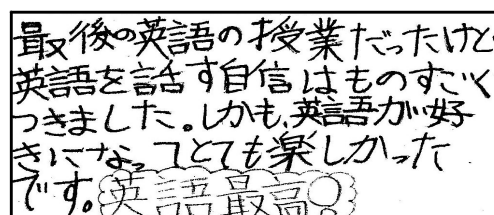 最後の英語の授業だったけど
英語を話す自信はものすごく
つきました。しかも、英語が好
きになってとても楽しかった
です。英語最高!